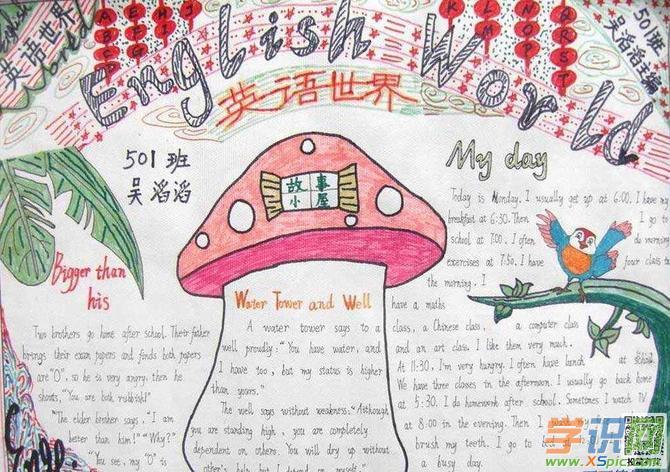 英语世界
A E H
B F I
K N Q
L O R
M P S
T
501班
吴滔滔主编
English World
英语世界
501班
吴滔滔
故事
小屋
My day
Today is Monday. I usually get up at 6:00. I have my
breakfast at 6:30. Then I go to
school at 7:00. I often do morning
exercises at 7:50. I have four class in
the morning. I
have a maths
class, a Chinese class, a computer class
and an art class. I like them very much.
At 11:30, I'm very hungry. I often have lunch at school.
We have three closes in the afternoon. I usually go back home
at 5:30. I do homework after school. Sometimes I watch TV
at 8:00 in the evening. Then I
brush my teeth. I go to
a busy day.
Bigger than
his
Two brothers go home after school. Their father
brings their exam papers and finds both papers
are "0", so he is very angry, then he
shouts, "You are both rubbish!"
"The elder brother says, "I am
better than him!" "Why?"
"You see, my "0" is
Water Tower and Well
A water tower says to a
well proudly: "You have water, and
I have too, but my status is higher
than yours."
The well says without weakness: "Although
you are standing high, you are completely
dependent on others. You will dry up without
other's help, but I depend on myself."
学识网
www.XSpic.net